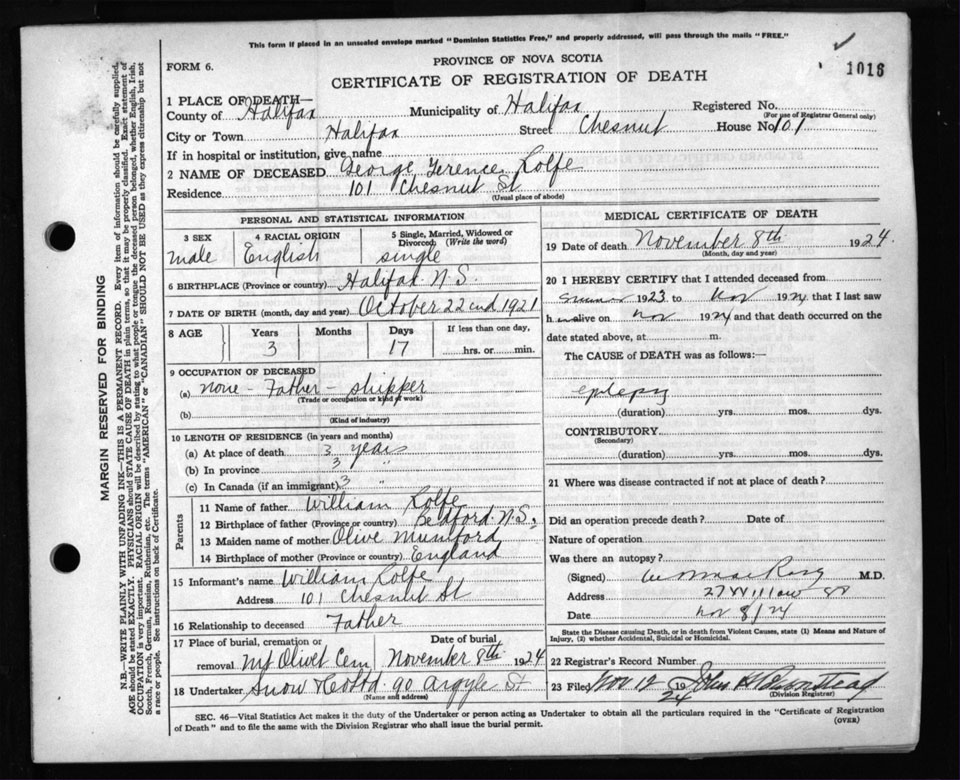 This form if placed in an unsealed envelope marked "Dominion Statistics Free," and properly addressed, will pass through the mails "FREE."
1016
FORM 6.
PROVINCE OF NOVA SCOTIA
CERTIFICATE OF REGISTRATION OF DEATH
1 PLACE OF DEATH—
County of Halifax Municipality of Halifax Registered No.
(For use of Registrar General only)
City or Town Halifax Street Chesnut House No. 101
If in hospital or institution, give name
2 NAME OF DECEASED George Terence Rolfe
Residence 101 Chesnut St
(Usual place of abode)
PERSONAL AND STATISTICAL INFORMATION
3 SEX 4 RACIAL ORIGIN 5 Single, Married, Widowed or Divorced (Write the word)
male English single
6 BIRTHPLACE (Province or country) Halifax N.S.
7 DATE OF BIRTH (month, day and year) October 22nd 1921
8 AGE Years Months Days If less than one day,
3 17 hrs. or min.
9 OCCUPATION OF DECEASED
(a) none - Father - shipper
(Trade or occupation or kind of work)
(b)
(Kind of industry)
10 LENGTH OF RESIDENCE (in years and months)
(a) At place of death 3 years
(b) In province 3 "
(c) In Canada (if an immigrant) 3 "
Parents
11 Name of father William Rolfe
12 Birthplace of father (Province or country) Bedford. N.S.
13 Maiden name of mother Olive Mumford
14 Birthplace of mother (Province or country) England
15 Informant's name William Rolfe
Address 101 Chesnut St
16 Relationship to deceased Father
17 Place of burial, cremation or removal Date of burial
Mt Olivet Cem November 8th 1924
18 Undertaker Snow & Co Ltd. 90 Argyle St
(Name and address)
MEDICAL CERTIFICATE OF DEATH
19 Date of death November 8th 1924.
(Month, day and year)
20 I HEREBY CERTIFY that I attended deceased from
Summer 1923 to Nov 1924 that I last saw
h im alive on Nov 1924 and that death occurred on the
date stated above, at m.
The CAUSE of DEATH was as follows:—
epilepsy
(duration) yrs. mos. dys.
CONTRIBUTORY
(Secondary)
(duration) yrs. mos. dys.
21 Where was disease contracted if not at place of death?
Did an operation precede death? Date of
Nature of operation
Was there an autopsy?
(Signed) M.D.
Address 27 Willow St
Date Nov 8/24
State the Disease causing Death, or in death from Violent Causes, state (1) Means and Nature of Injury, (1) whether Accidental, Suicidal or Homicidal.
22 Registrar's Record Number
23 Filed Nov 12 1924 John
(Division Registrar)
SEC. 46—Vital Statistics Act makes it the duty of the Undertaker or person acting as Undertaker to obtain all the particulars required in the "Certificate of Registration
of Death" and to file the same with the Division Registrar who shall issue the burial permit.
(OVER)
MARGIN RESERVED FOR BINDING
N.B.—WRITE PLAINLY WITH UNFADING INK—THIS IS A PERMANENT RECORD. Every item of information should be carefully supplied.
AGE should be stated EXACTLY. PHYSICIANS should STATE CAUSE OF DEATH in plain terms, so that it may be properly classified. Exact statement of
OCCUPATION is very important. RACIAL ORIGIN will be described by stating to what people or tongue the deceased person belonged, whether English, Irish,
Scotch, French, German, Russian, Ruthenian, etc. The terms "AMERICAN" or "CANADIAN" SHOULD NOT BE USED as they express citizenship but not
a race or people. See instructions on back of Certificate.